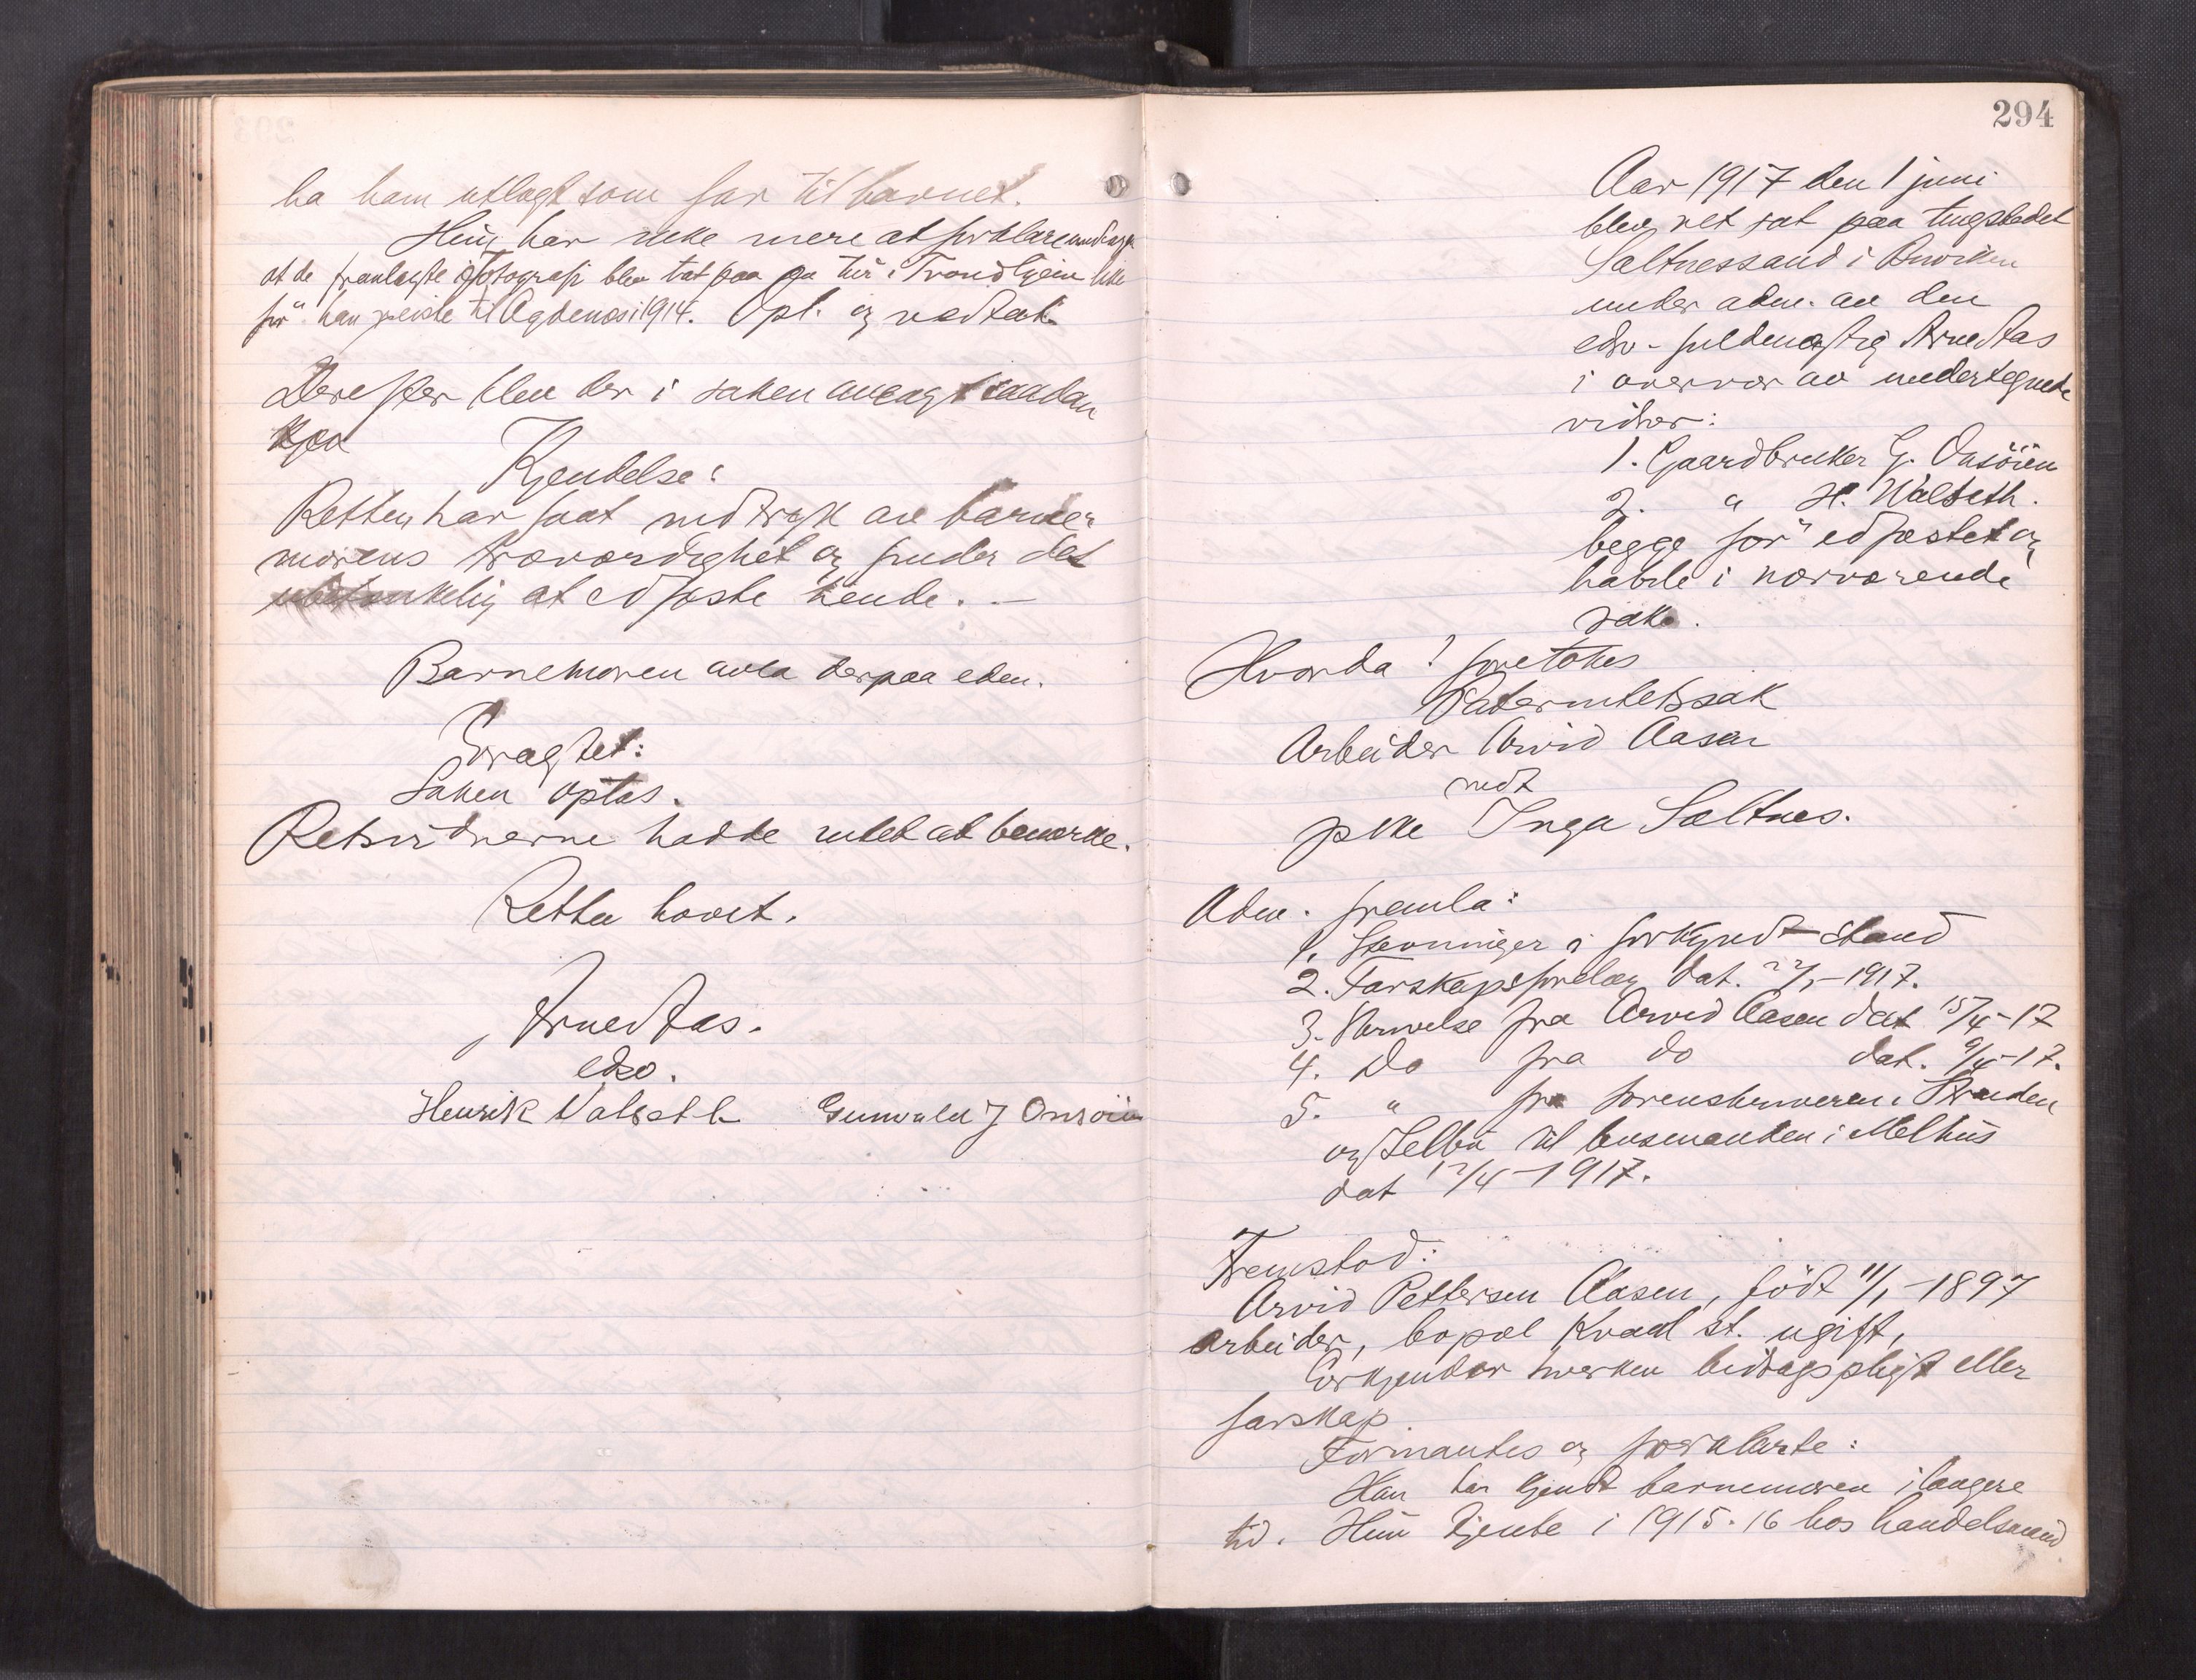 ha ham utlagt som far til barnet.
Hun har ikke mere at forklare undtagen
at de fremlagte fotografi blev tat paa en tur i Trondhjem like
før han reiste til Agdenes i 1914. Opl. og vedtat.
Derefter blev der i saken avsagt saadan
Kjen
Kjendelse:
Retten har faat indtryk av barne-
morens troværdighet og finder det
ubetænkelig at edfæste hende. . —
Barnemoren avla derpaa eden.
Eragtet:
Saken optas.
Retsvidnerne hadde intet at bemerke.
Retten hævet.
Arne Aas.
edsv.
Henrik Valseth Gunvald J Onsøien
294
Aar 1917 den 1 juni
blev ret sat paa tingstedet
Saltnessand i Buviken
under adm. av den
edsv. fuldmægtig Arne Aas
i overvær av undertegnede
vidner:
1. Gaardbruker G. Onsöien
2. " H. Walseth.
begge før edfæstet og
habile i nærværende
sak.
Hvorda! foretokes
Paternitetssak
Arbeider Arvid Aasen
mot
pike Inga Saltnes.
Adm. fremla:
1. Stevninger i forkyndt stand
2. Farskapsforelæg dat. 22/1-1917.
3. Skrivelse fra Arvid Aasen dat 15/4-17
4. Do fra do dat. 9/4-17.
5. " fra sorenskriveren i Strinden
og Selbu til lensmanden i Melhus
dat 12/4-1917.
Fremstod:
Arvid Pettersen Aasen, född 11/1-1897
arbeider, bopæl Kvaal st. ugift,
Erkjender hverken bidragspligt eller
farskap.
Formantes og forklarte:
Han har kjendt barnemoren i længere
tid. Hun tjente i 1915-16 hos handelsmand